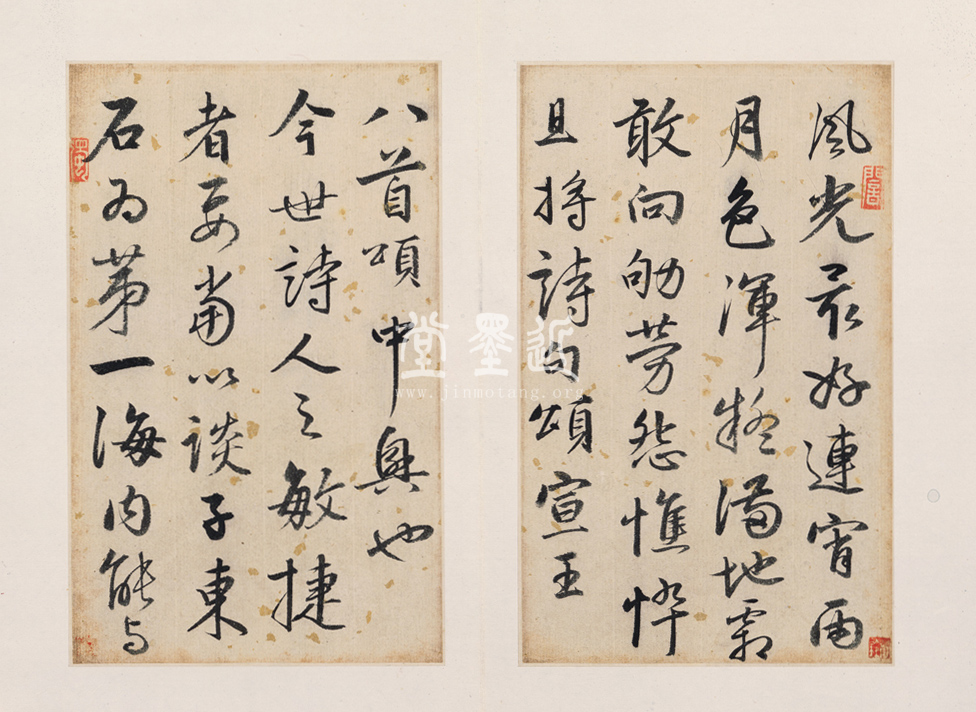 風光最好連宵雨
月色渾疑滿地霜
敢向劬勞怨憔悴
且将詩句頌宣王
八首頌中興也
今世詩人之敏捷
者要當以談子東
石为第一海内能与
近墨堂
www.jinmotang.org